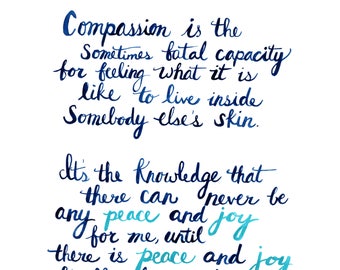 Compassion is the
Sometimes fatal capacity
for feeling what it is
like to live inside
Somebody else's skin.
It's the Knowledge that
there can never be
any peace and joy
for me, until
there is peace and joy